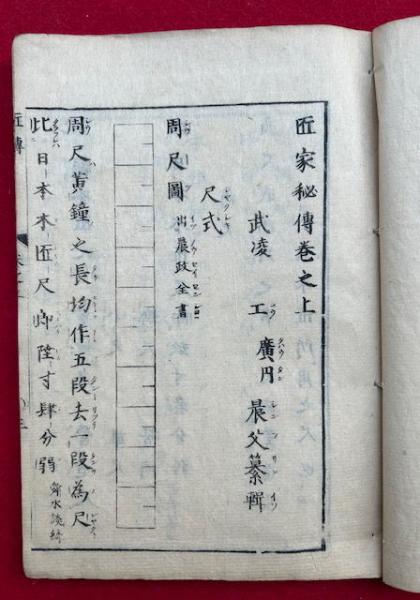 匠家秘傳巻之上
武凌 工 廣丹 晨父 纂輯
尺式
周尺圖 出農政全書
周尺黃鐘之長均作五段去一段為尺
此日本木匠尺 陸寸肆分弱
匠傳